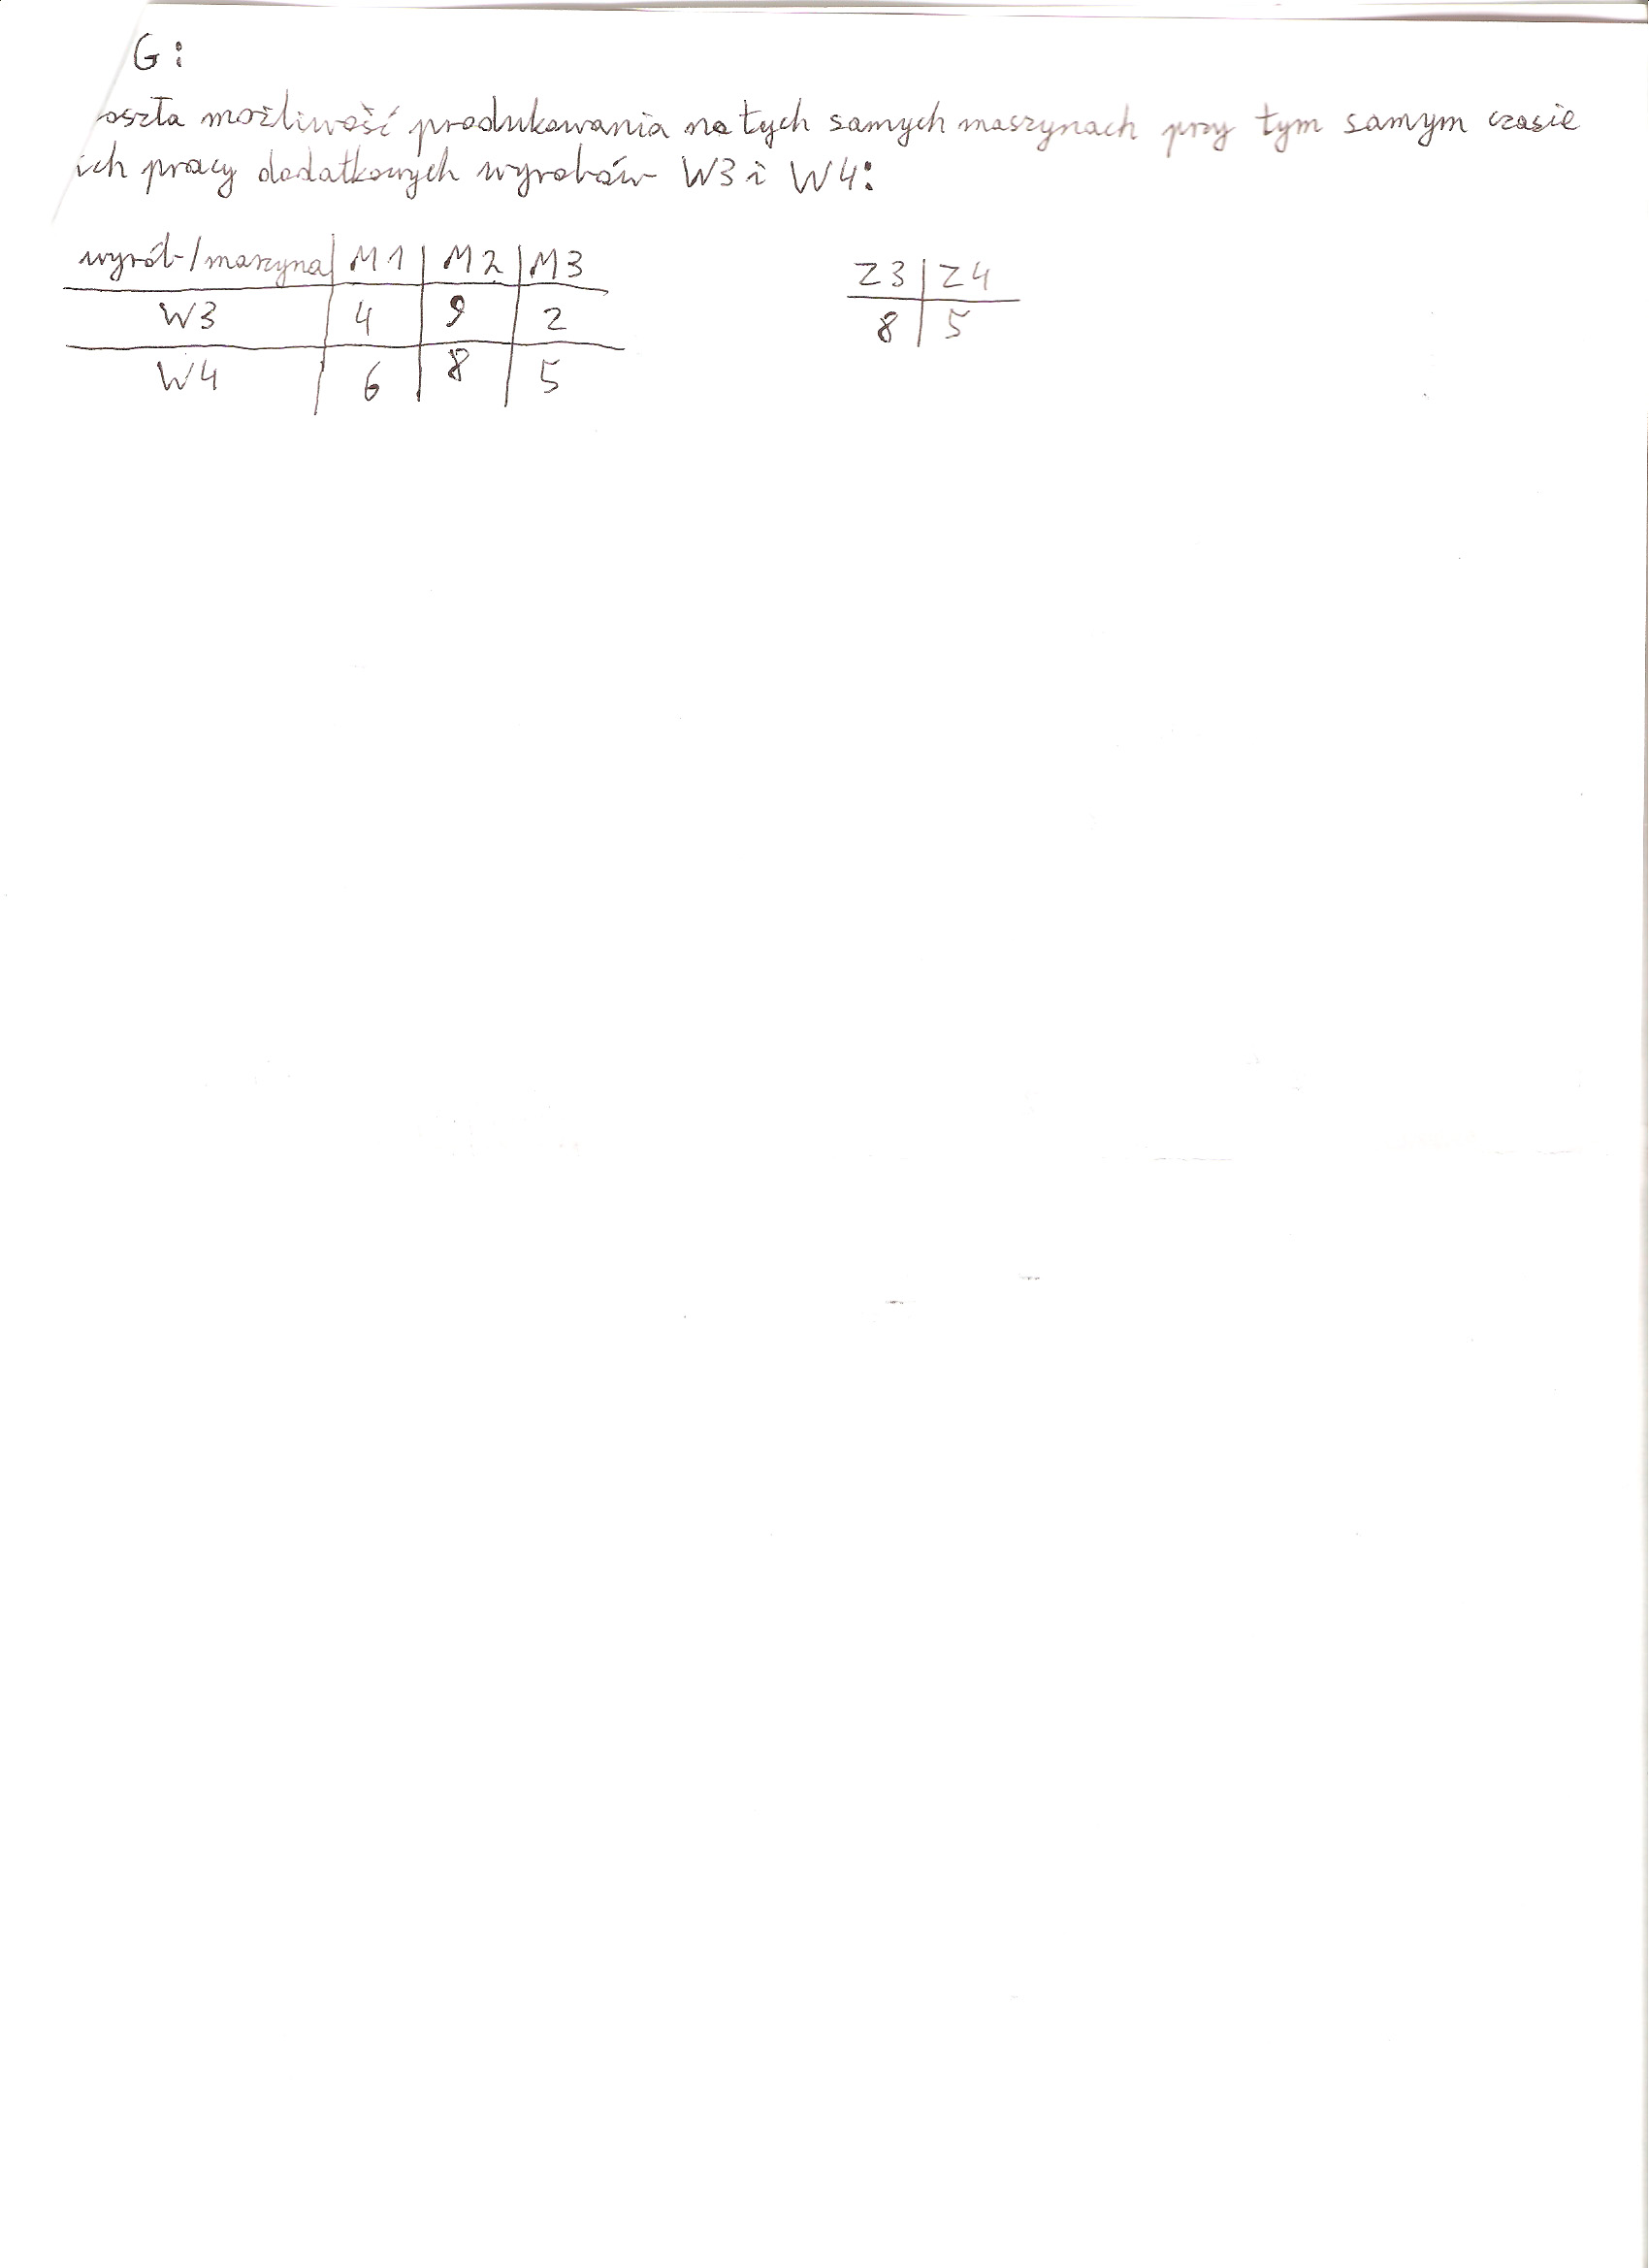 G:
oszła możliwość produkowania na tych samych maszynach przy tym samym czasie
ich pracy dodatkowych wyrobów W3 i W4:
wyrób/maszyna M1 M2 M3
W3 4 9 2
W4 6 8 5
Z3 Z4
8 5